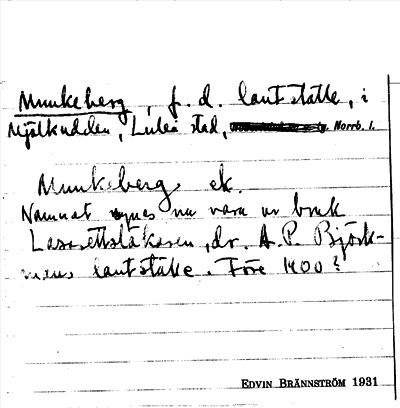 Munkeberg, f. d. lantställe, i
Mjölkudden, Luleå stad, Norrb. l.
Munkebergs ek.
Namnet synes nu vara ur bruk
Lasarettsläkaren, dr. A. P. Björk-
mans lantställe. Före 1900?
EDVIN BRÄNNSTRÖM 1931